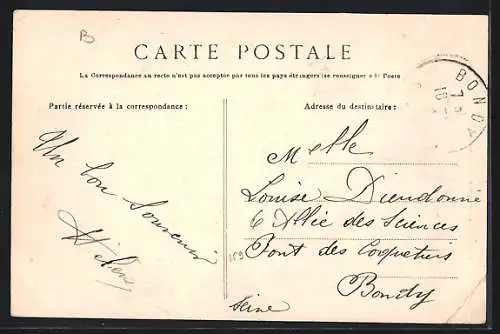 B
CARTE POSTALE
La Correspondance au recto n'est pas acceptée par tous les pays étrangers (se renseigner à la Poste
Partie réservée à la correspondance :
Adresse du destinataire :
BONDY
Un bon
Souvenir
Melle
Louise Dieudonné
6 Allée des Sciences
Pont des Coquetiers
Bondy
Seine